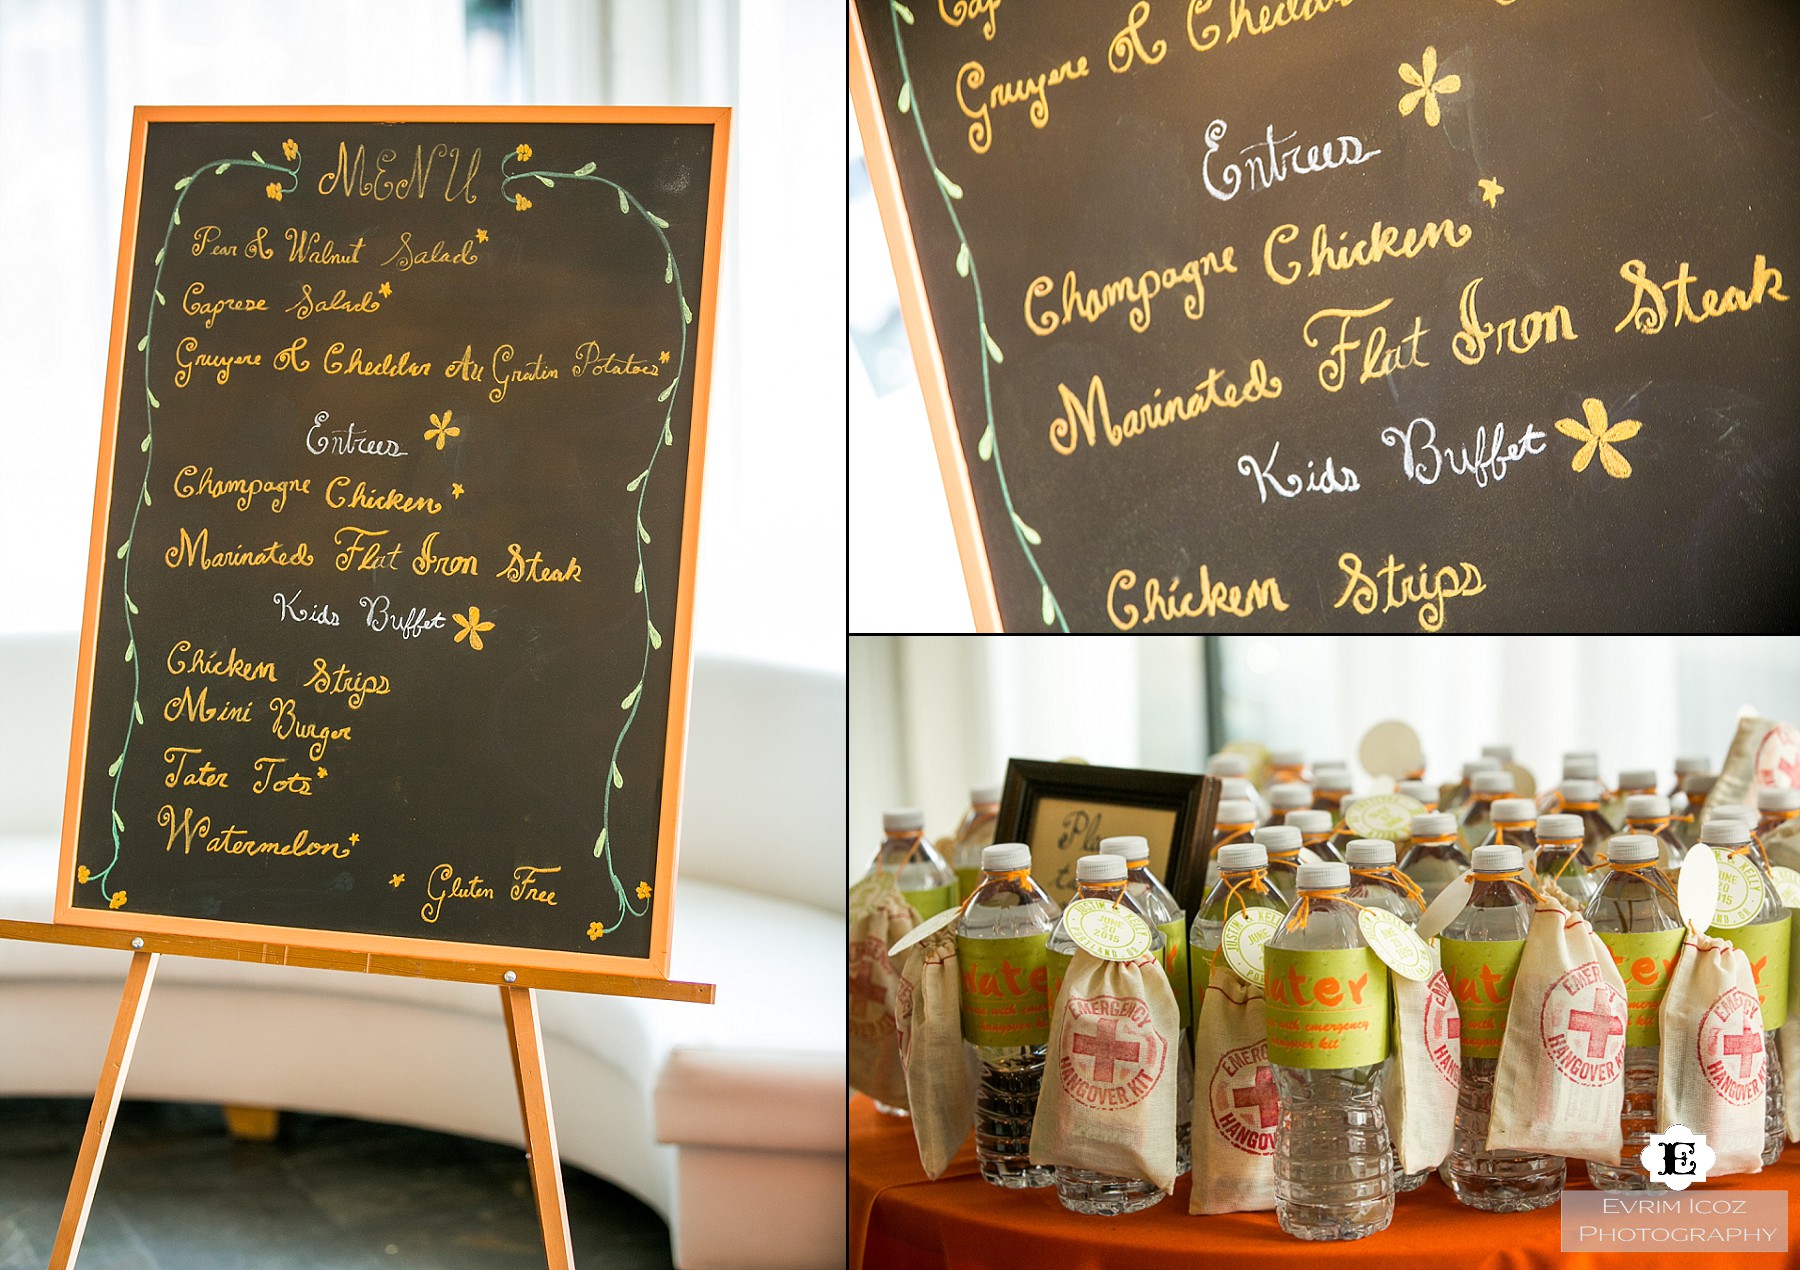 MENU
Pear & Walnut Salad*
Caprese Salad*
Gruyere & Cheddar Au Gratin Potatoes*
Entrees
Champagne Chicken*
Marinated Flat Iron Steak
Kids Buffet
Chicken Strips
Mini Burger
Tater Tots*
Watermelon*
* Gluten Free
Cap
Gruyere & Cheddar
Entrees
Champagne Chicken*
Marinated Flat Iron Steak
Kids Buffet
Chicken Strips
JUSTIN & KELLY
JUNE
20
2015
PORTLAND, OR
Water
with emergency
hangover kit
EMERGENCY
HANGOVER KIT
EMERGENCY
HANGOVER KIT
EMERGENCY
HANGOVER KIT
E
EVRIM ICOZ
PHOTOGRAPHY